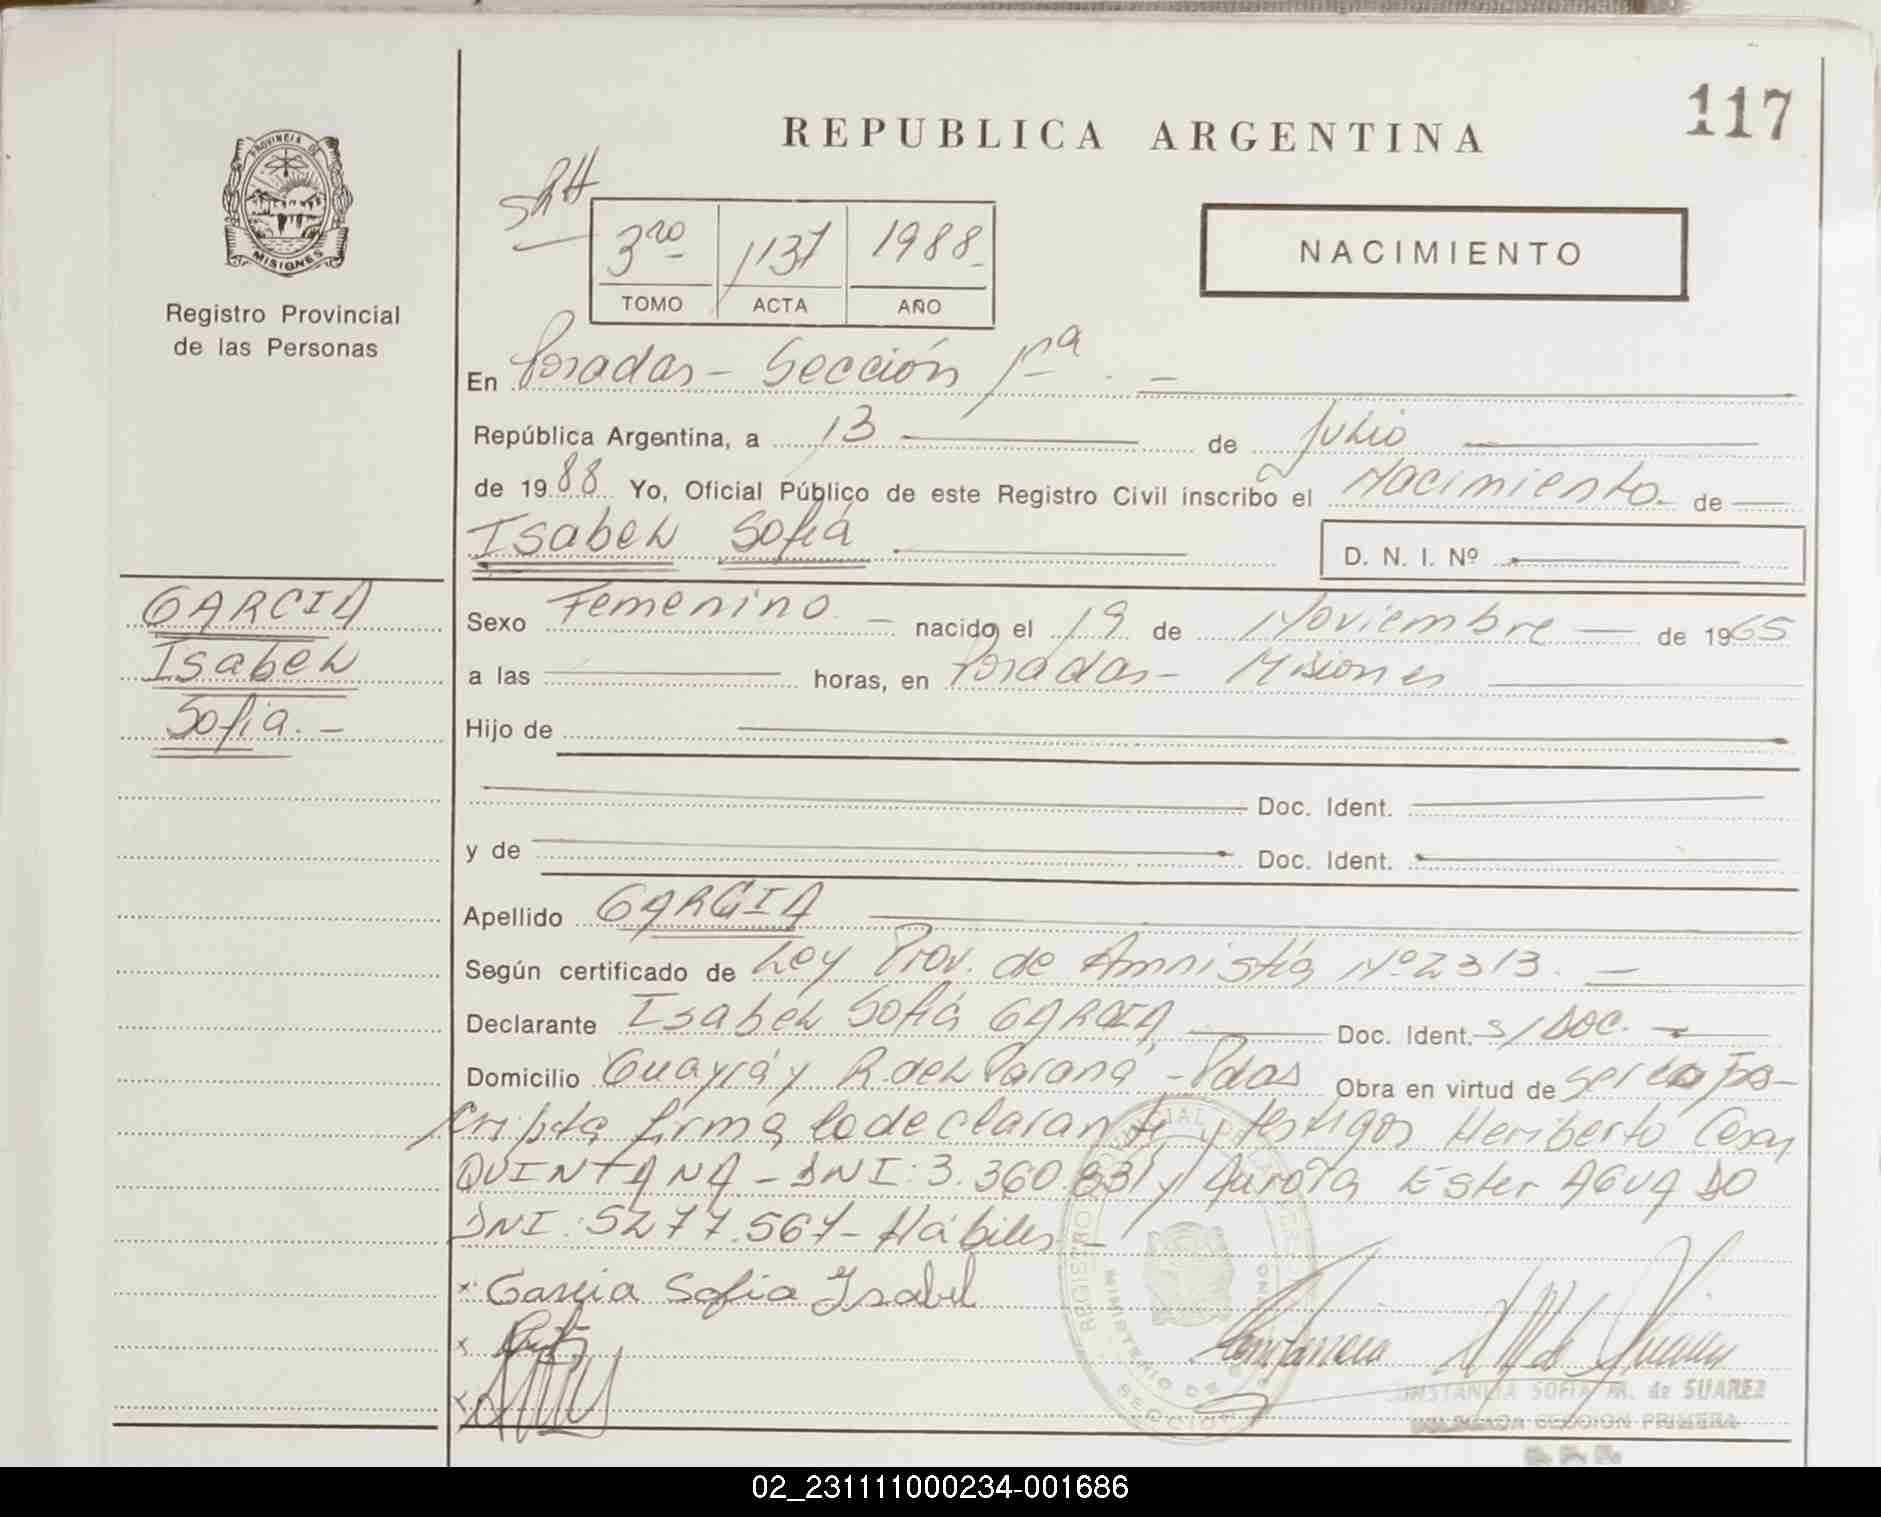 117
REPUBLICA ARGENTINA
PROVINCIA DE
MISIONES
Registro Provincial
de las Personas
3ro 1137 1988
TOMO ACTA AÑO
NACIMIENTO
En Posadas - Sección 1ra. -
República Argentina, a 13 de Julio
de 1988 Yo, Oficial Público de este Registro Civil inscribo el Nacimiento de
Isabel Sofía
D. N. I. Nº
GARCIA
Isabel
Sofia. -
Sexo Femenino - nacido el 19 de Noviembre de 1965
a las horas, en Posadas - Misiones
Hijo de
Doc. Ident.
y de Doc. Ident.
Apellido GARCIA
Según certificado de Ley Prov. de Amnistía Nº 2313. -
Declarante Isabel Sofía GARCIA, Doc. Ident. S/DOC. -
Domicilio Guayrá y R. del Paraná - Pdas Obra en virtud de ser la Ins-
cripta firma la declarante y testigos Heriberto Cesar
QUINTANA - DNI: 3.360.831 y Aurora Ester AGUADO
DNI: 5277.567 - Hábiles -
x Garcia Sofia Isabel
x
x
CONSTANCIA SOFIA M. de SUAREZ
DELEGADA SECCION PRIMERA
02_231111000234-001686